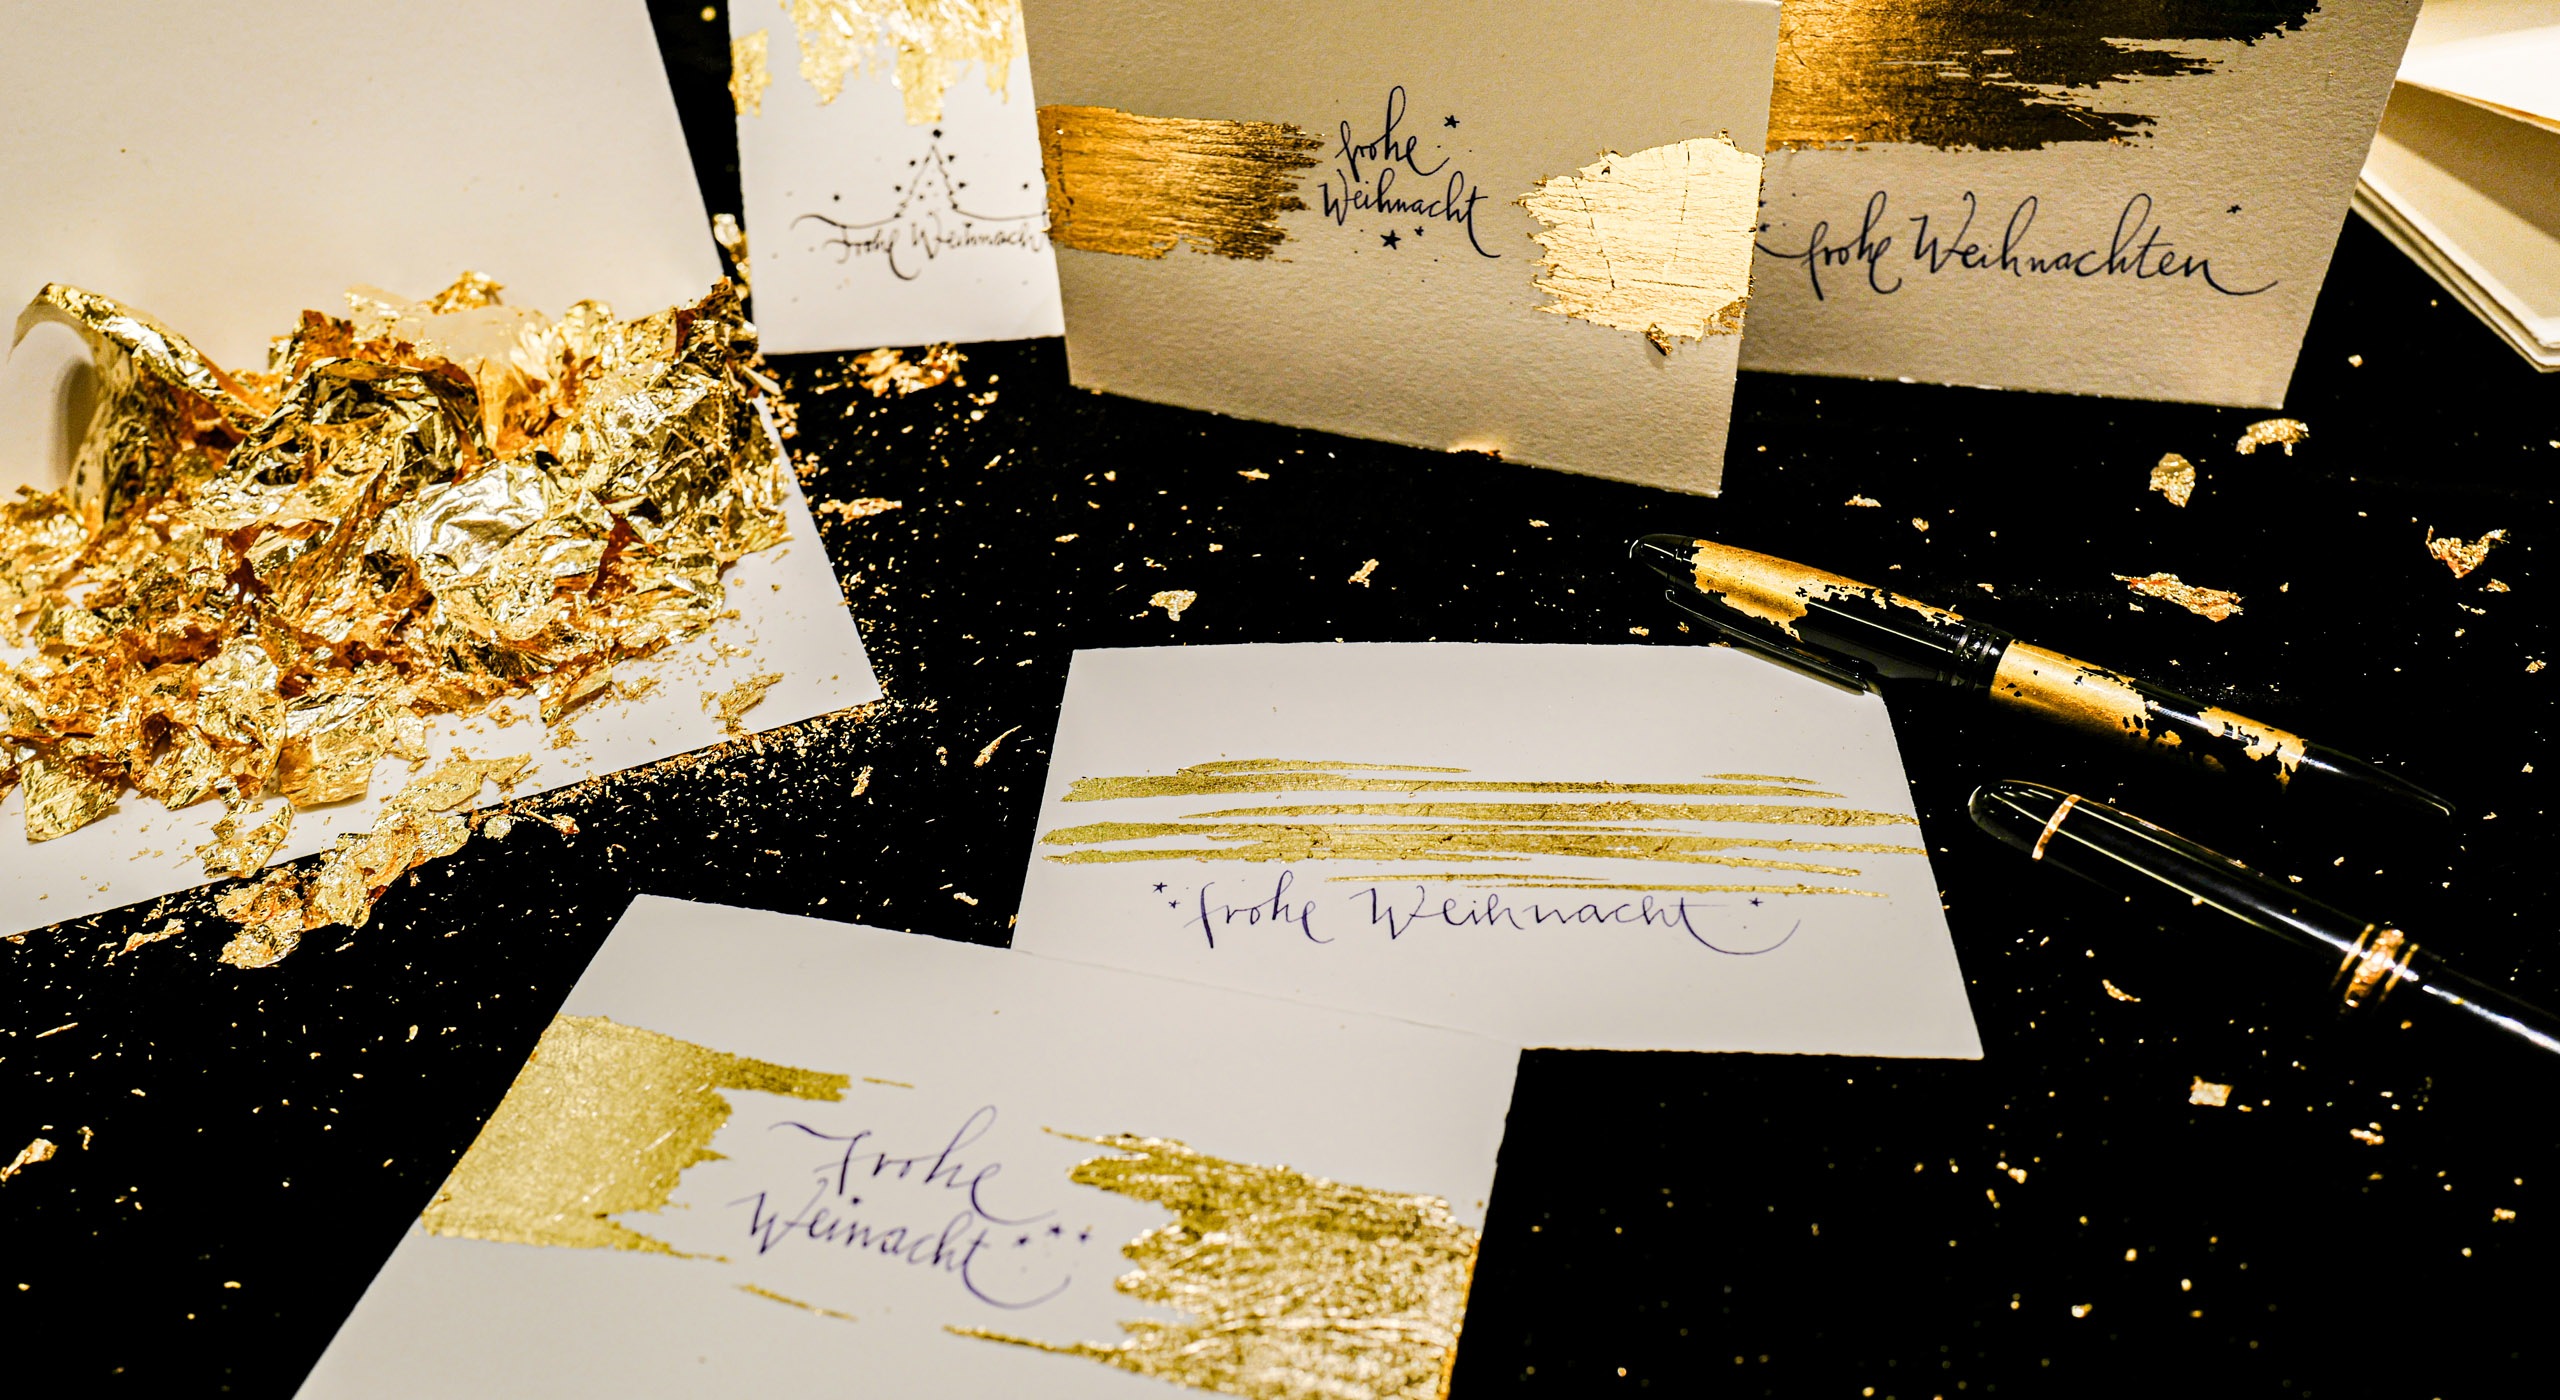 Frohe Weihnacht
frohe
Weihnacht
frohe Weihnachten
frohe Weihnacht
Frohe
Weinacht